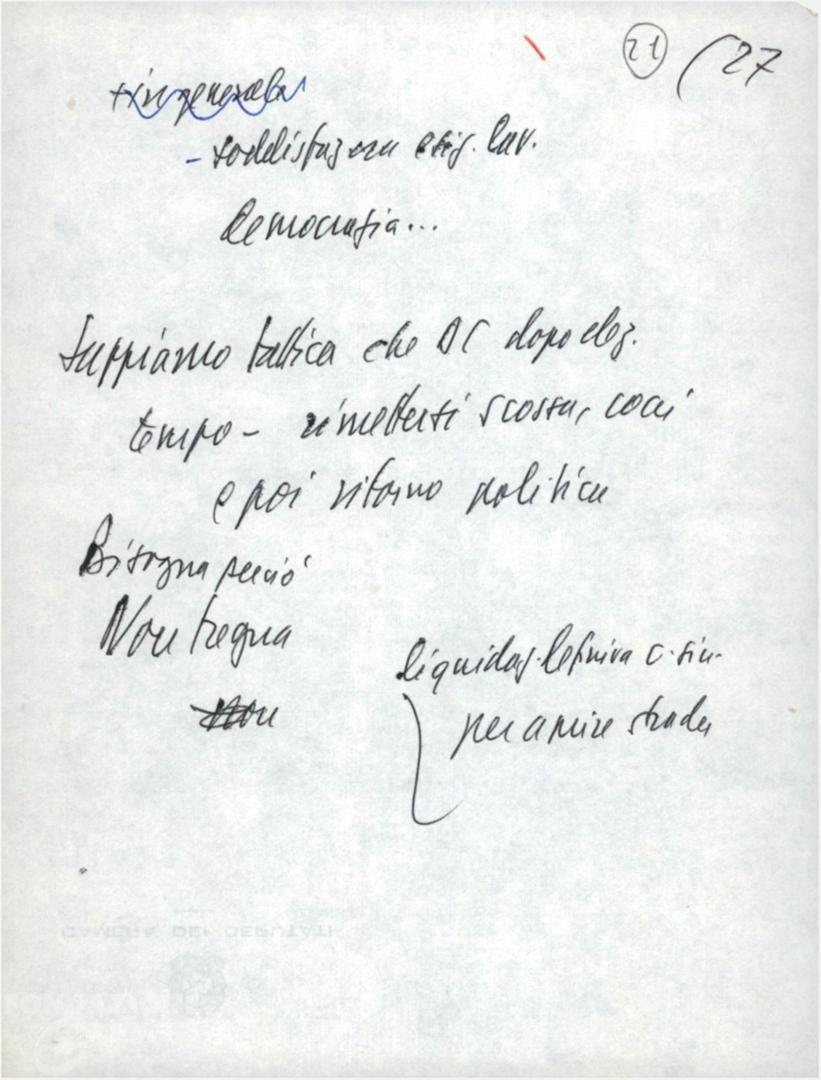 21 (27
+ in generale
- soddisfazione esig. lav.
democrazia...
Sappiamo tattica che DC dopo elez.
tempo - rimettersi scossa, cocci
e poi ritorno politica
Bisogna perciò
Non tregua
liquidaz. definiva c. sin.
Non
per aprire strada
CAMERA DEI DEPUTATI